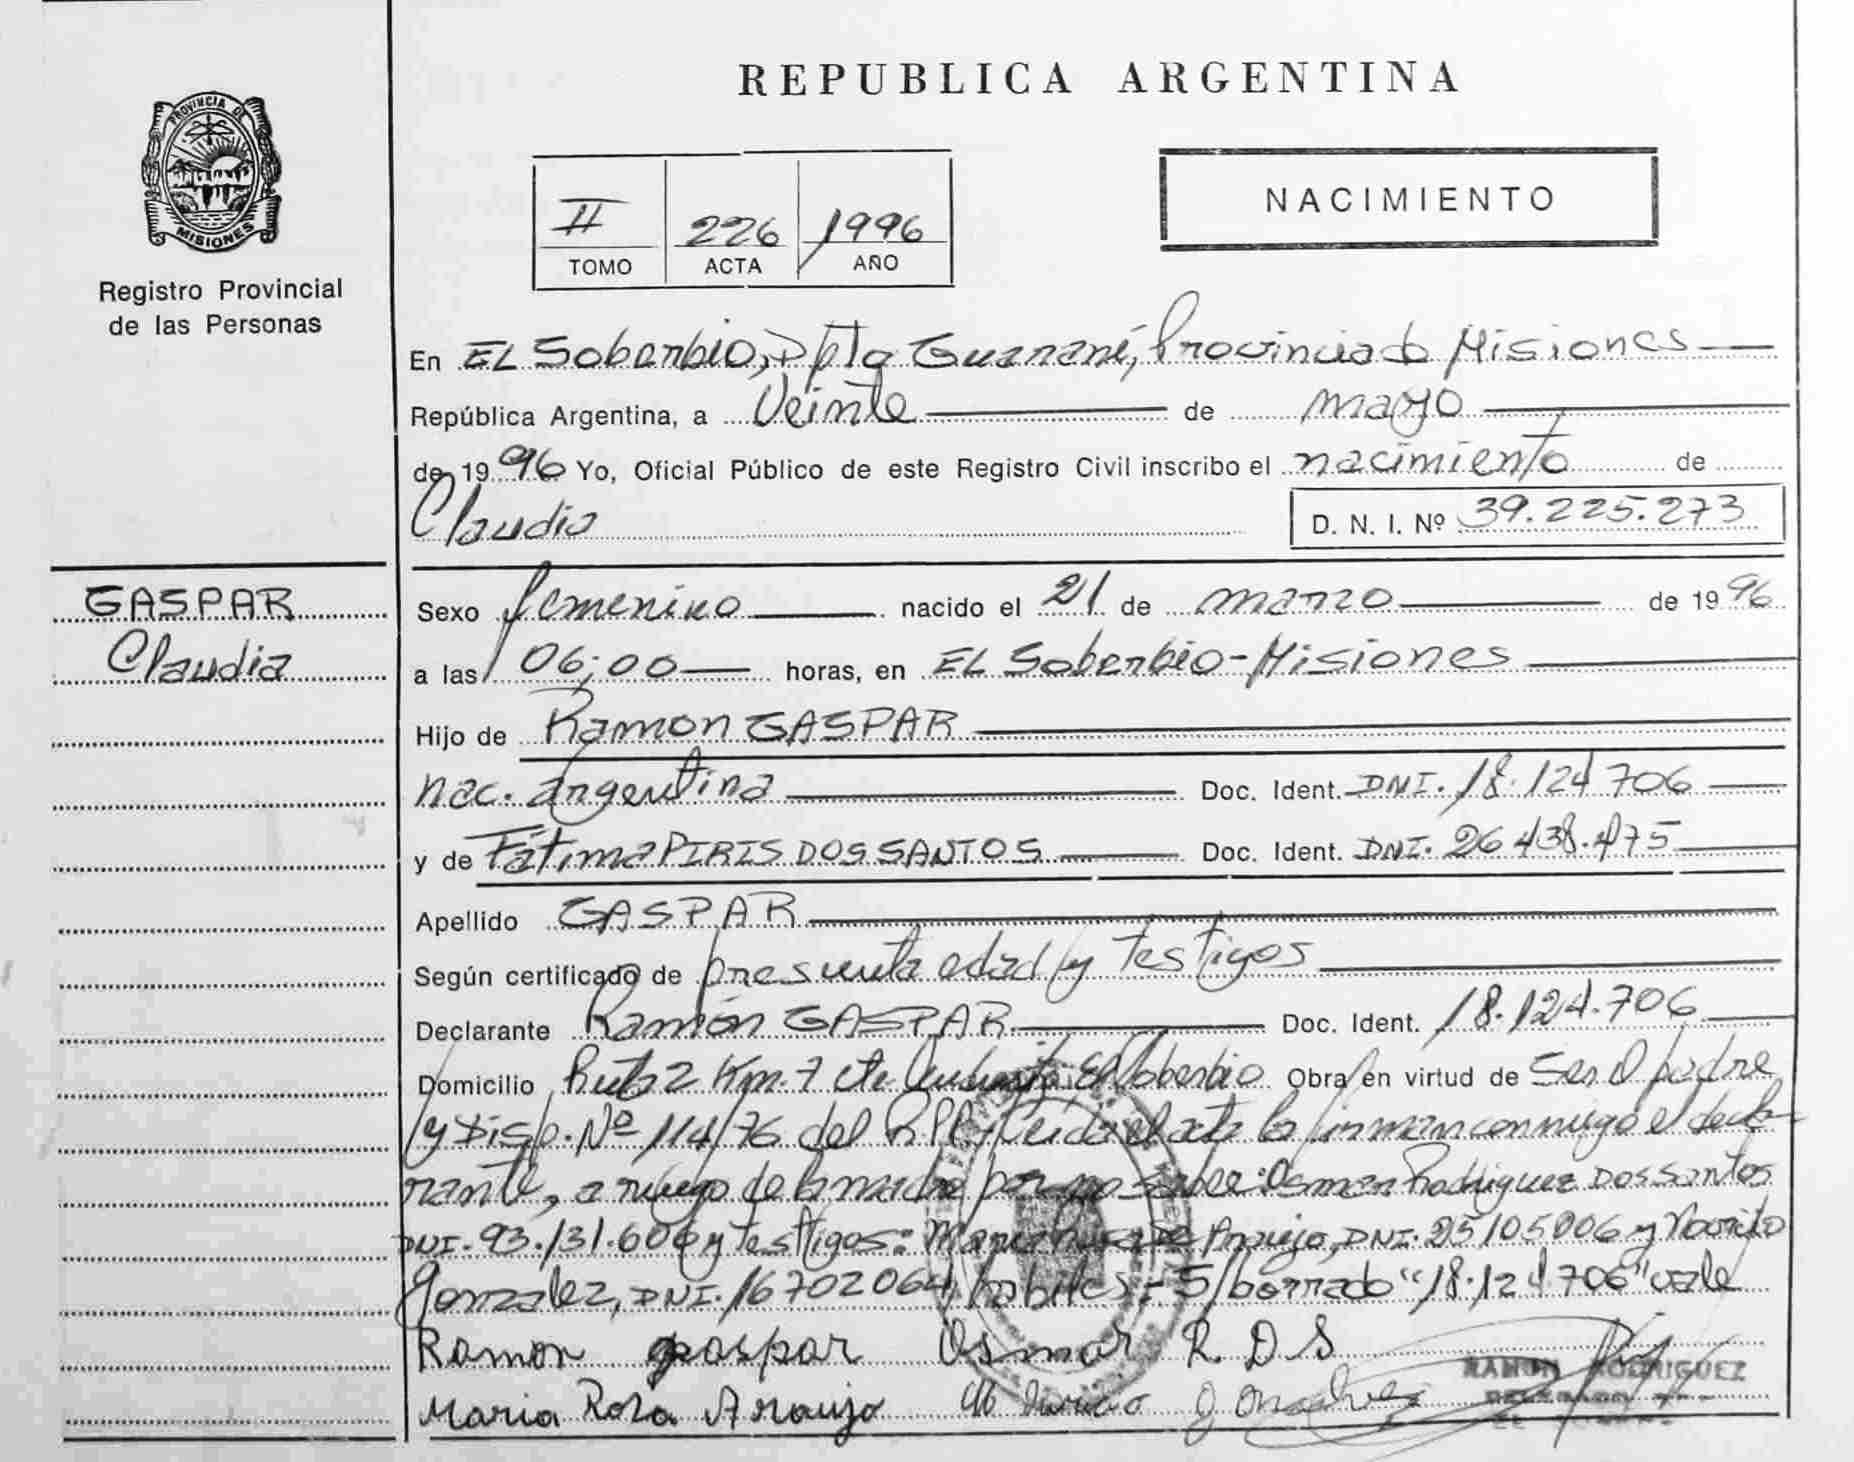 REPUBLICA ARGENTINA
PROVINCIA DE MISIONES
Registro Provincial
de las Personas
II 226 1996
TOMO ACTA AÑO
NACIMIENTO
En EL Soberbio, Dpto Guaraní, Provincia de Misiones
República Argentina, a Veinte de mayo
de 1996 Yo, Oficial Público de este Registro Civil inscribo el nacimiento de
Claudia D. N. I. Nº 39.225.273
GASPAR
Claudia
Sexo femenino nacido el 21 de marzo de 1996
a las 06;00 horas, en EL Soberbio-Misiones
Hijo de Ramon GASPAR
nac. argentina Doc. Ident. DNI. 18.124 706
y de Fátima PIRIS DOS SANTOS Doc. Ident. DNI. 26 438.475
Apellido GASPAR
Según certificado de presunta edad y testigos
Declarante Ramón GASPAR Doc. Ident. 18.124.706
Domicilio Ruta 2 Km. 7 El Soberbio Obra en virtud de Ser el padre
y Disp. Nº 114/76 del R.P.P. y Leida el acta la firman conmigo el decla-
rante, a ruego de la madre por no saber: Osmar Rodriguez Dos Santos
DNI. 93.131.606 y testigos: Maria Rosa de Araujo, DNI. 25105006 y
Gonzalez, DNI. 16702064, habiles - S/borrado "18.124 706" vale
Ramon gaspar Osmar R. D S
Maria Rosa Araujo
RAMON RODRIGUEZ